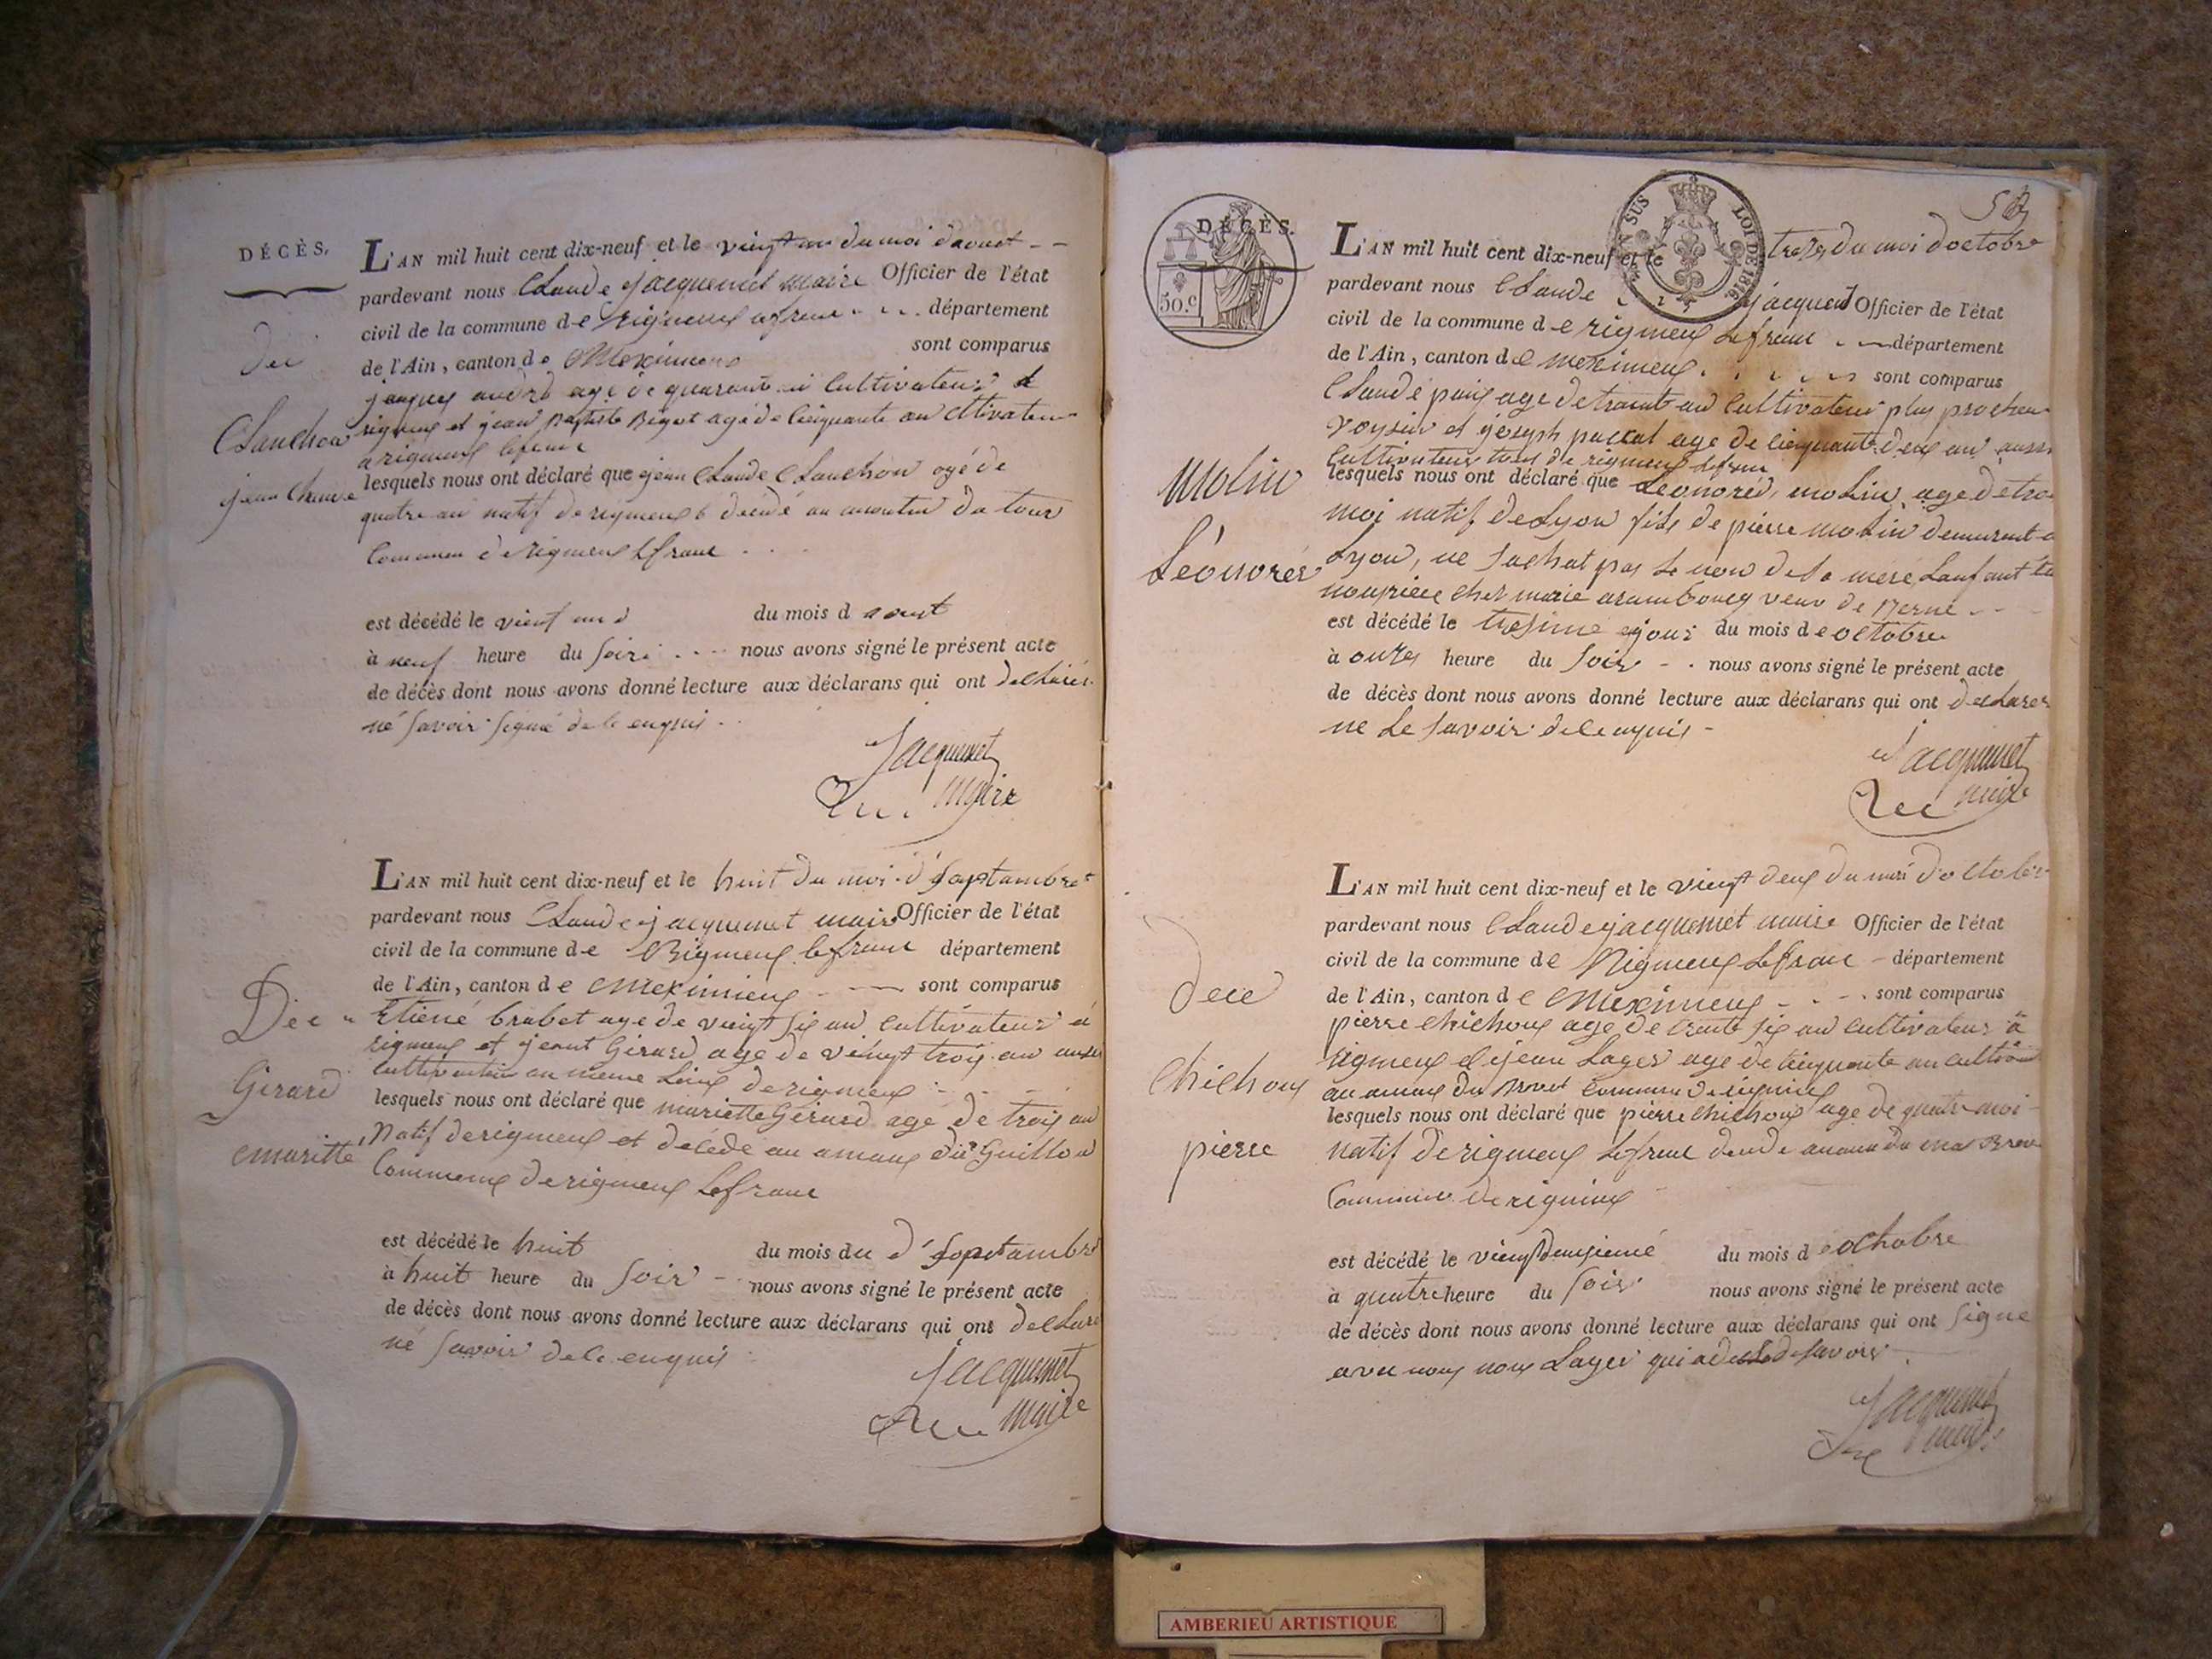 DÉCÈS.
L'AN mil huit cent dix-neuf et le vingt un du moi daout
pardevant nous Claude jacquemet maire Officier de l'état
civil de la commune de rigneux lefranc département
de l'Ain, canton de Meximieux sont comparus
jacques andré agé de quarante cultivateur
rigneux et jean Baptiste agé de cinquante an
a rigneux lefranc
lesquels nous ont déclaré que jean Claude Clanchon agé de
quatre an natif de rigneux decedé au du tour
commune de rigneux lefranc
est décédé le vient un du mois d aout
à neuf heure du soir nous avons signé le présent acte
de décès dont nous avons donné lecture aux déclarans qui ont
né savoir signé de le enquis
Jacquemet
maire
Clanchon
jean
L'AN mil huit cent dix-neuf et le huit du moi d'saptambre
pardevant nous Claude jacquemet maire Officier de l'état
civil de la commune de Rigneux lefranc département
de l'Ain, canton de Meximieux sont comparus
Etiene brabet age de vingt six an cultivateur a
rigneux et Girard age de vingt trois an aussi
cultivateur au meme lieux de rigneux
lesquels nous ont déclaré que mariette Girard age de trois an
Natif de rigneux et décédé au amaux du Guillon
Commune de rigneux lefranc
est décédé le huit du mois du d'saptambre
à huit heure du soir nous avons signé le présent acte
de décès dont nous avons donné lecture aux déclarans qui ont declaré
né savoir de le enquis
Jacquemet
maire
Dec
Girard
mariette
DÉCÈS.
50.c
SUS LOI DE 1816
L'AN mil huit cent dix-neuf et le treze du moi doctobre
pardevant nous Claude jacquemet Officier de l'état
civil de la commune de rigneux lefranc département
de l'Ain, canton de meximieux sont comparus
Claude age de trante an cultivateur plus prochen
voysin et joseph age de cinquante deux an aussi
cultivateur tous de rigneux lefranc
lesquels nous ont déclaré que Léonoréd, molin age de
moi natif de Lyon fils de pierre molin demurant a
Lyon, ne sachat pas le nom de la mere, Lanfant
chet marie veuve de
est décédé le tresime jour du mois de octobre
à onze heure du soir nous avons signé le présent acte
de décès dont nous avons donné lecture aux déclarans qui ont declarer
ne le savoir de le enquis
Jacquemet
maire
molin
Léonorés
L'AN mil huit cent dix-neuf et le vingt deux du moi d'octobre
pardevant nous Claude jacquemet maire Officier de l'état
civil de la commune de Rigneux Lefranc département
de l'Ain, canton de Meximieux sont comparus
pierre chichoux age de trente six an cultivateur à
rigneux et jean Lager age de cinquante an
au amaux du commune de
lesquels nous ont déclaré que pierre chichoux age de quatre moi
natif de rigneux Lefranc du mas
Commune de rignieux
est décédé le vientdeusiemé du mois de octobre
à quatre heure du soir nous avons signé le présent acte
de décès dont nous avons donné lecture aux déclarans qui ont signé
avec nous non Layer qui a de savoir
Jacquemet
maire
Dece
chichoux
pierre
AMBERIEU ARTISTIQUE